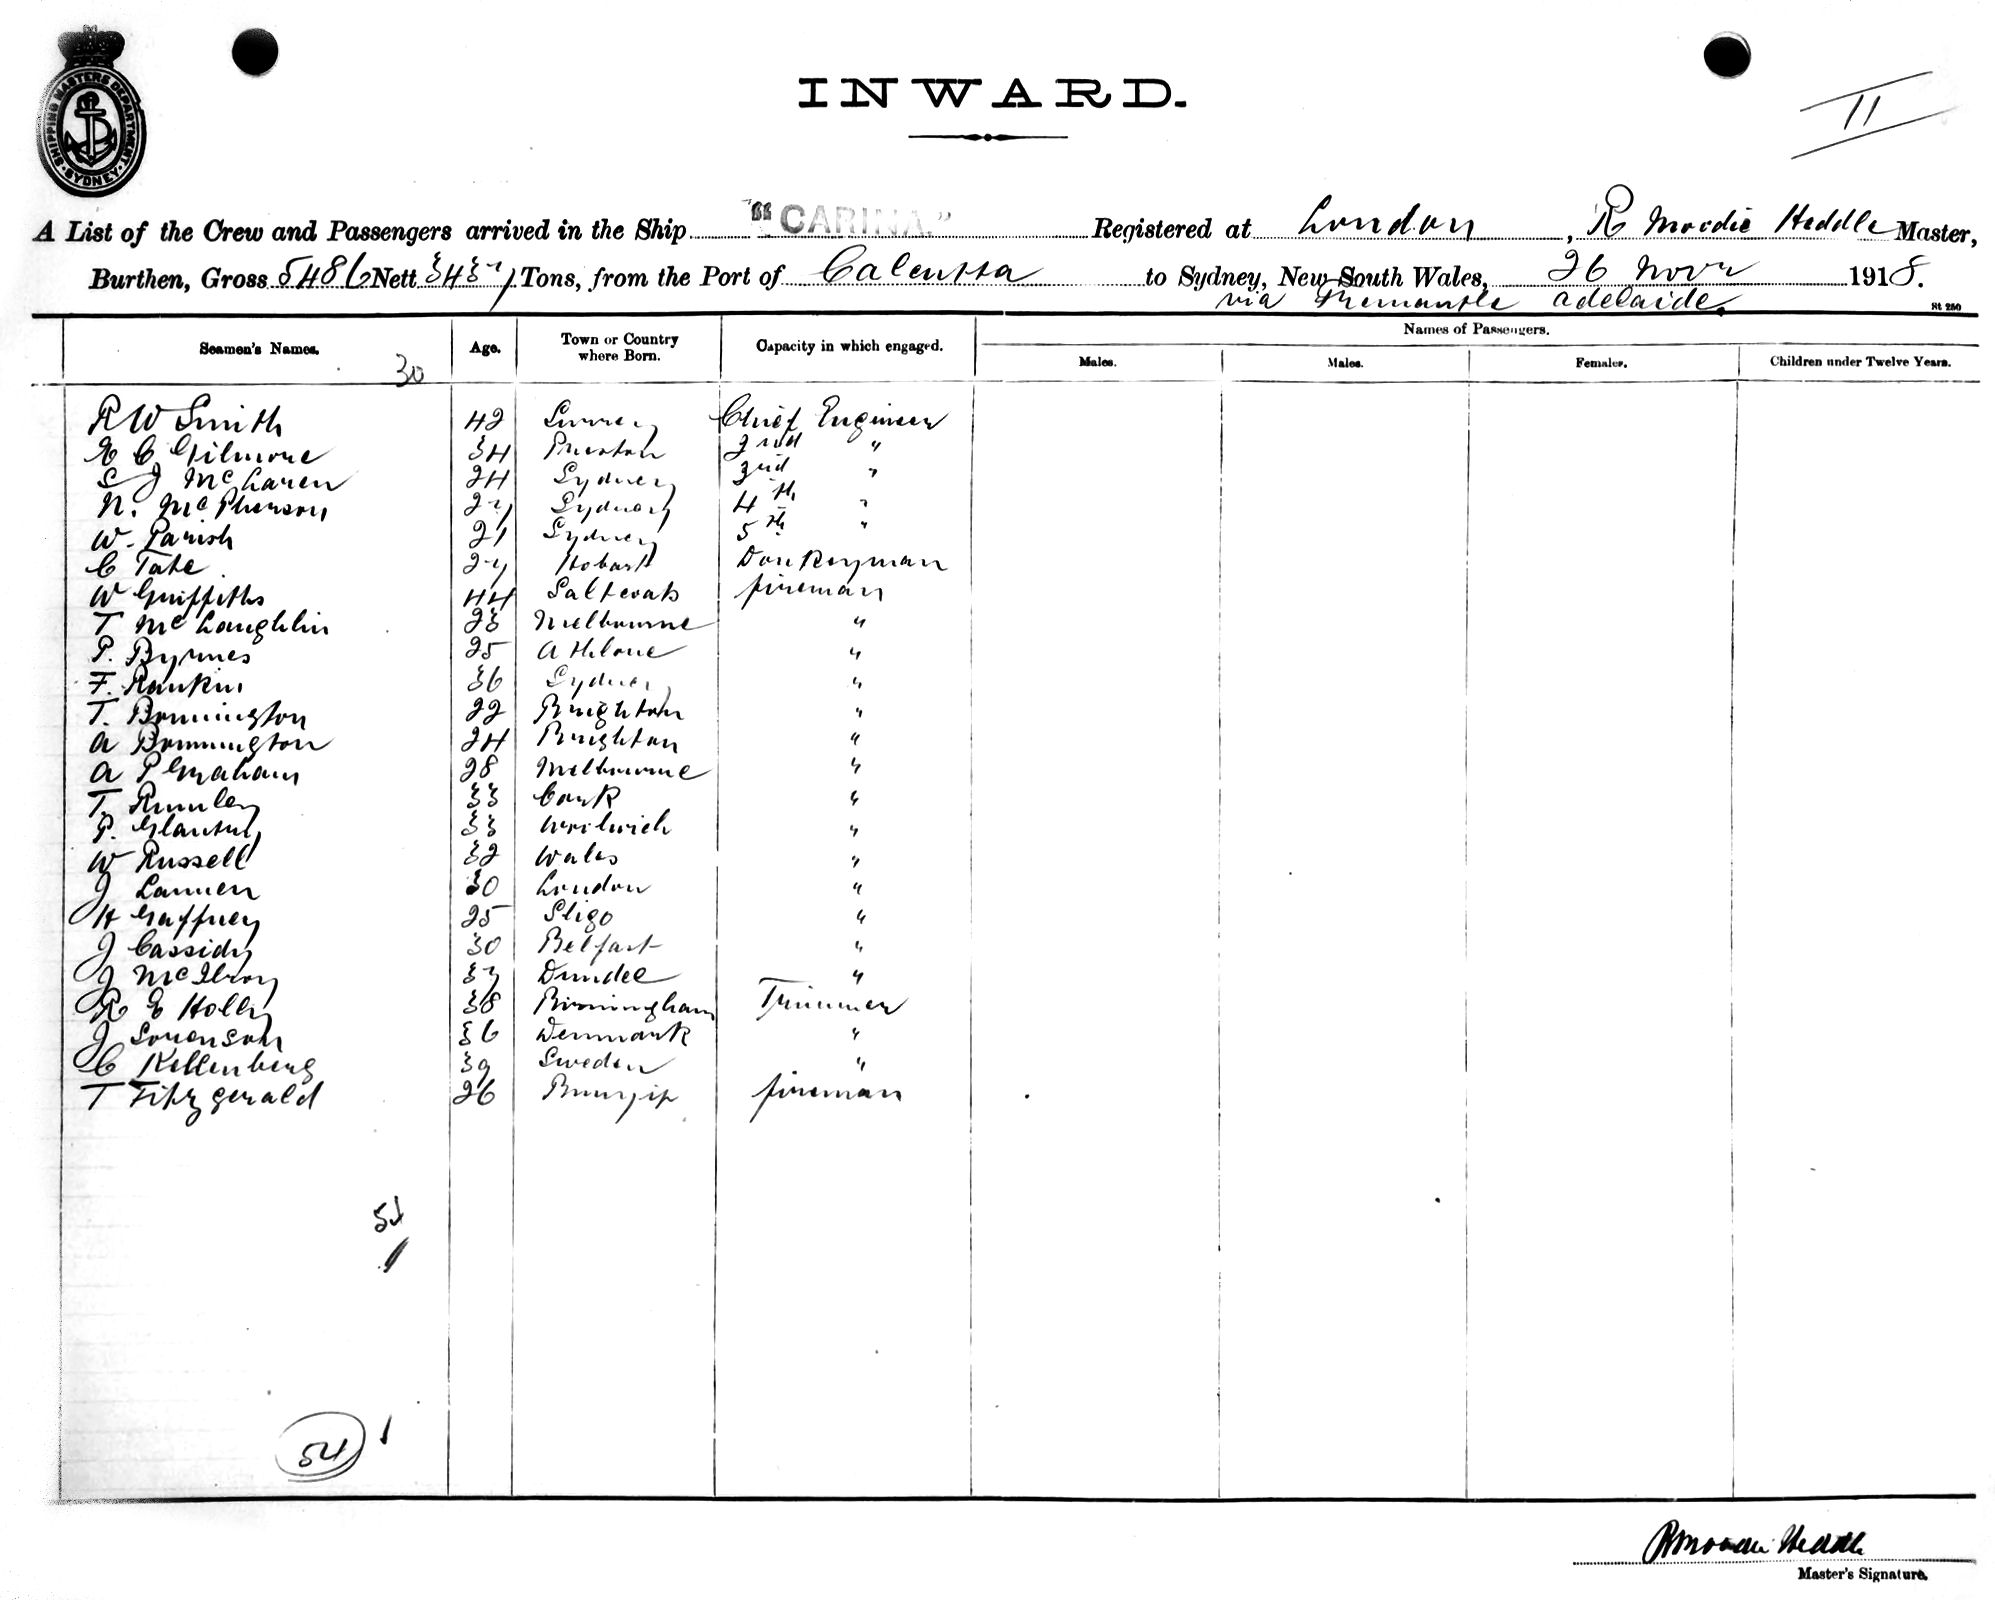 SHIPPING MASTERS DEPARTMENT · SYDNEY ·
INWARD.
II
A List of the Crew and Passengers arrived in the Ship "CARINA." Registered at London, R Moodie Heddle Master,
Burthen, Gross 5486 Nett 3437 Tons, from the Port of Calcutta to Sydney, New South Wales, 26 Novr 1918.
via Fremantle Adelaide.
St 250
Seamen's Names. Age. Town or Country where Born. Capacity in which engaged. Names of Passengers.
Males. Males. Females. Children under Twelve Years.
30
R W Smith 42 Surrey Chief Engineer
E C Gilmore 34 Preston 2nd "
S J McLaren 24 Sydney 3rd "
N. McPherson 27 Sydney 4th "
W. Parish 21 Sydney 5th "
C Tate 27 Hobart Donkeyman
W Griffiths 44 Saltcoats fireman
T McLaughlin 23 Melbourne "
P. Byrnes 25 Athlone "
F. Rankin 36 Sydney "
T. Bonnington 22 Brighton "
A Bonnington 24 Brighton "
A P Graham 28 Melbourne "
T. Rumley 33 Cork "
P. 33 Woolwich "
W Russell 32 Wales "
J Lannen 30 London "
H Gaffney 25 Sligo "
J Cassidy 30 Belfast "
J McIlroy 37 Dundee "
R E Holly 38 Birmingham Trimmer
J Sorenson 36 Denmark "
C Kellenberg 39 Sweden "
T Fitzgerald 26 Bunyip fireman
54
R Moodie Heddle
Master's Signature.